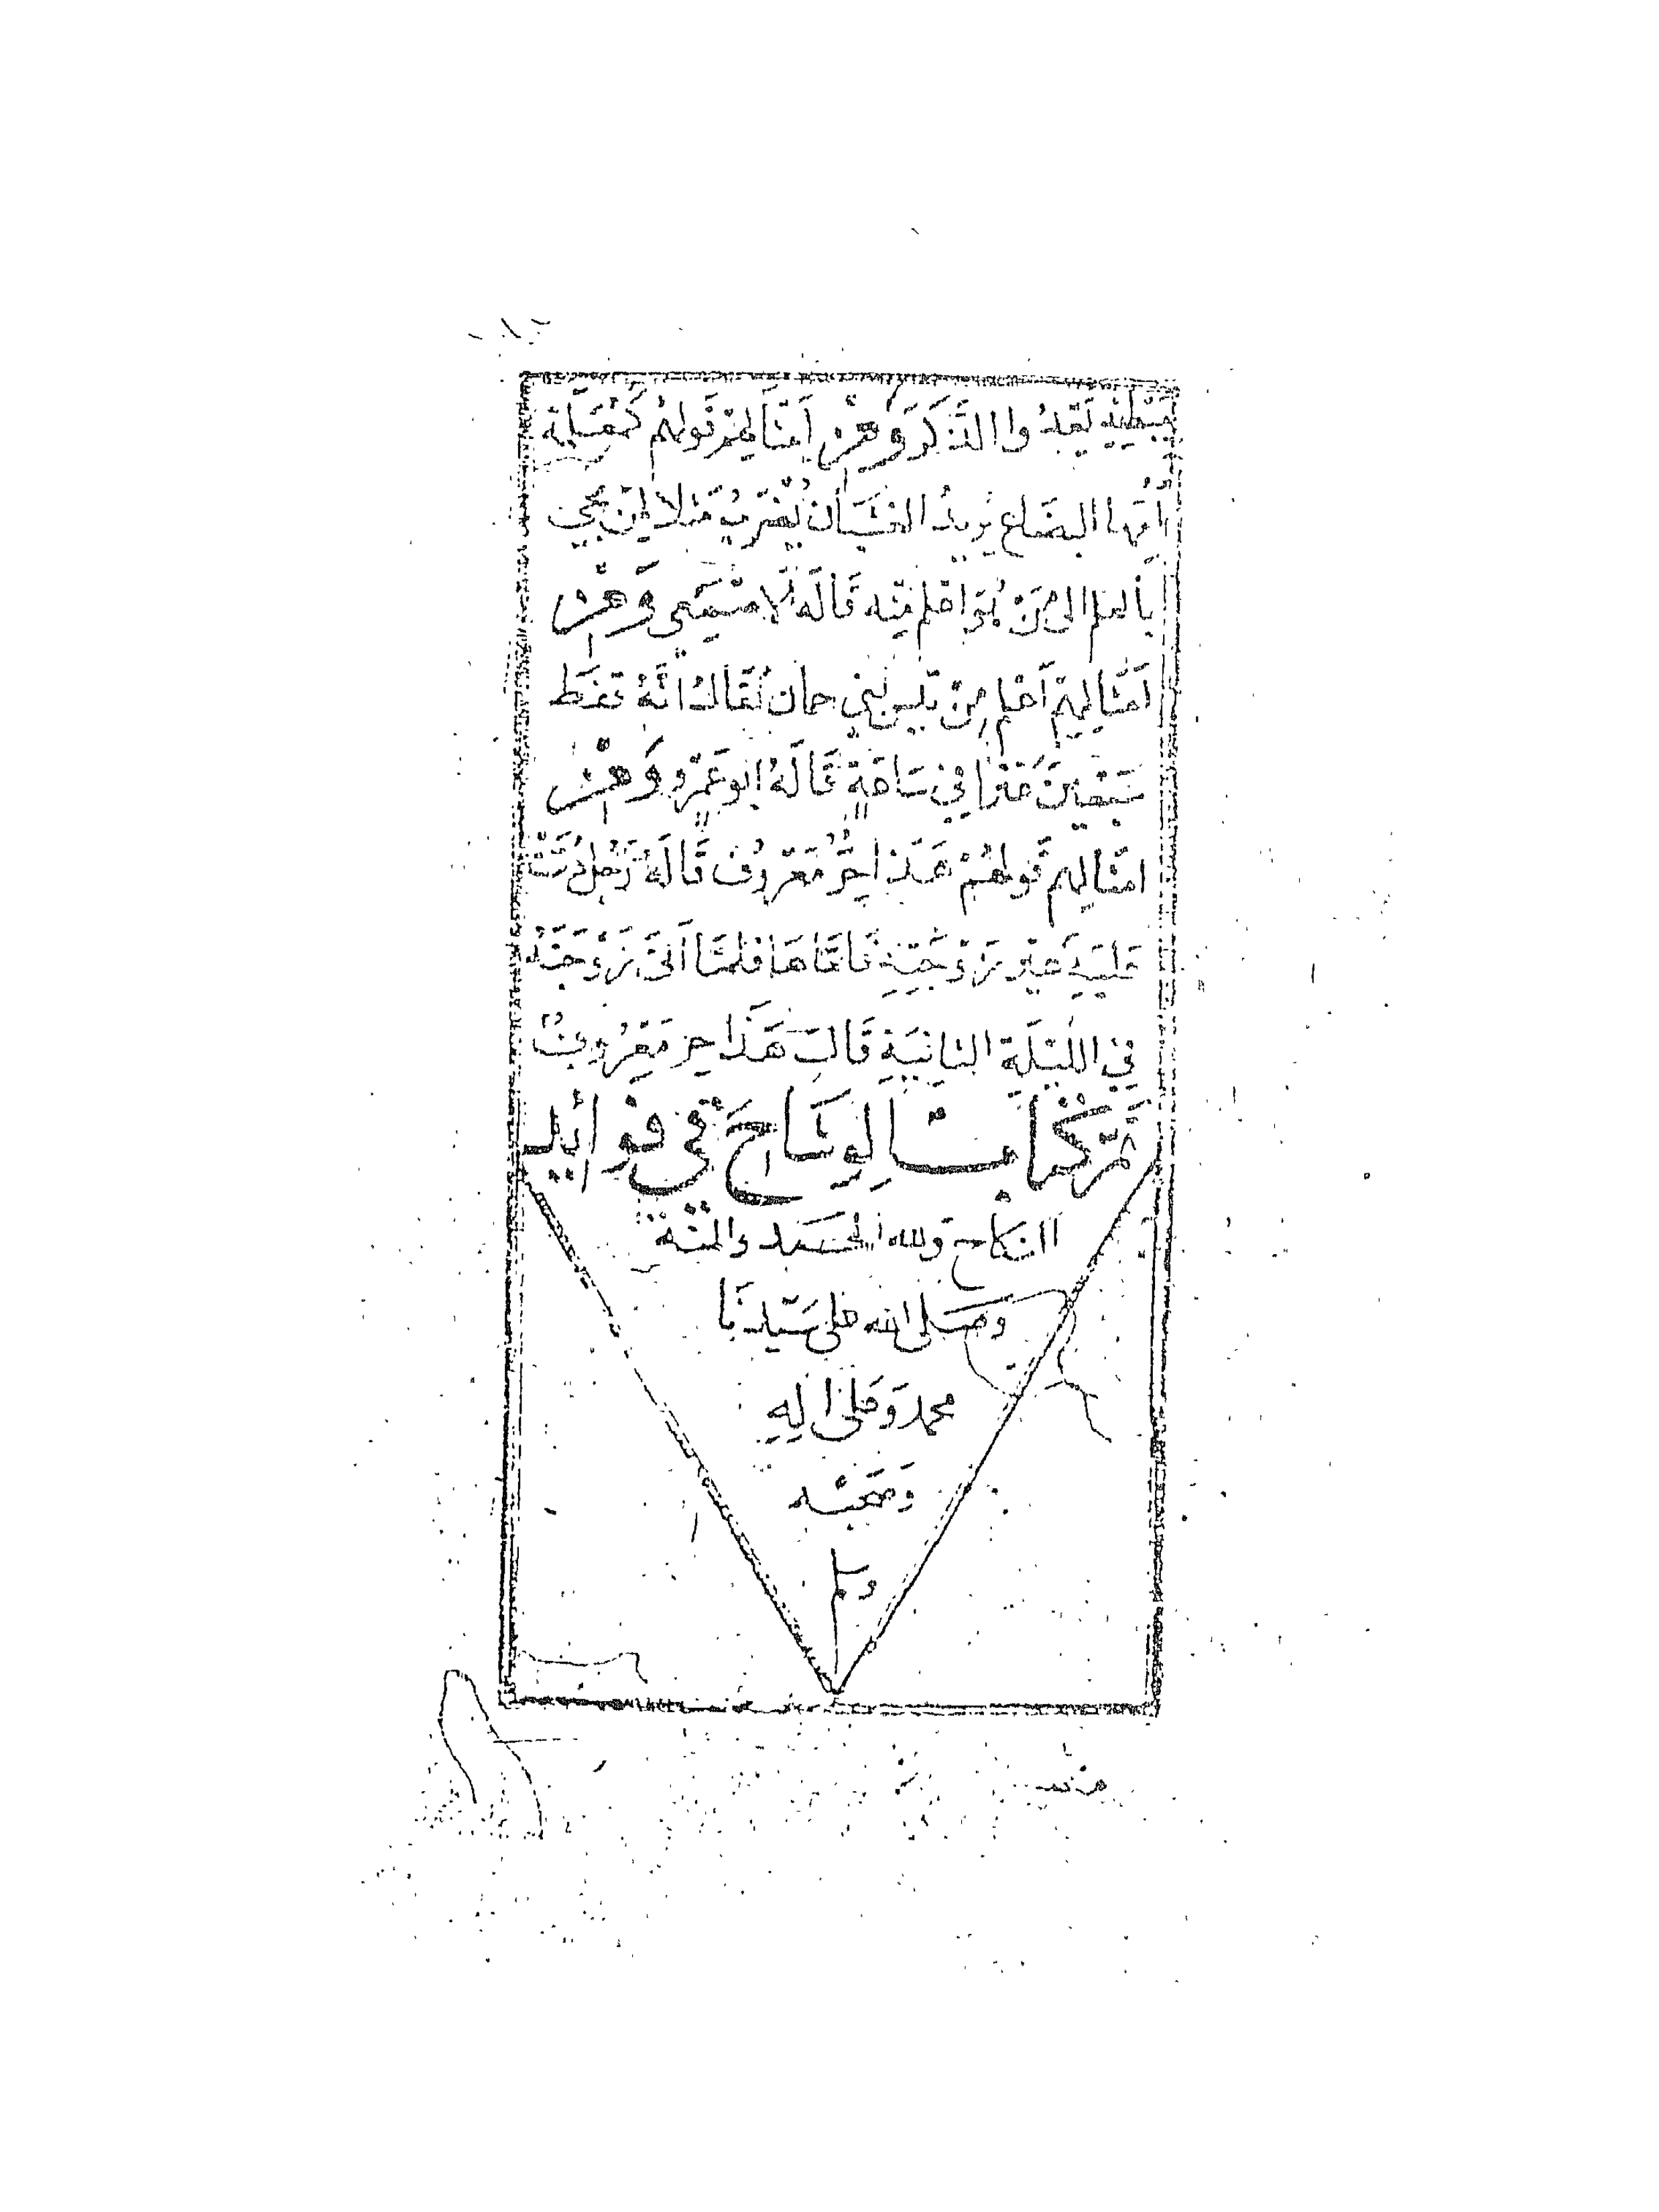 بَبْطِنِهِ بَعْدُ والذَّكَرَ وَمِنْ اَمْثَالِهِمْ قَولُهُمْ كَمُعَلِّمَة
اُمَّهَا البضَاع يُرِيدُ الغشيَان يُضْرَبُ مَثلا لمن يجي
بالعلم الى مَنْ هُوَ اعلم مِنْه قَالَهُ الاصْمَعِي وَمِنْ
اَمْثَالِهِم اَغلم مِنْ تيس بني حمان يُقَالُ انَّهُ قفط
سَبْعِينَ عَنْزا فِي سَاعَةٍ قَالَهُ ابُو عَمْرٍو وَمِنْ
امْثَالِهِم قَولهُمْ هَذا حِرٌ مَعْرُوف قَالَهُ رَجُلٌ
عَلَيْهِ غير زَوْجَتِهِ فَاتَاهَا فَلَمَّا اَتَى زَوْجَتَهُ
فِي اللَّيْلَةِ الثَانِيَةِ قَالَتْ هَذَا حر مَعْرُوفٌ
تَمَّ كِتَابُ الوِشَاح فِي فَوَائِد
النكاح ولله الحمد والمنة
وصلى الله على سَيّدنَا
محمد وَعَلى الِهِ
وَصَحْبه
وسلم